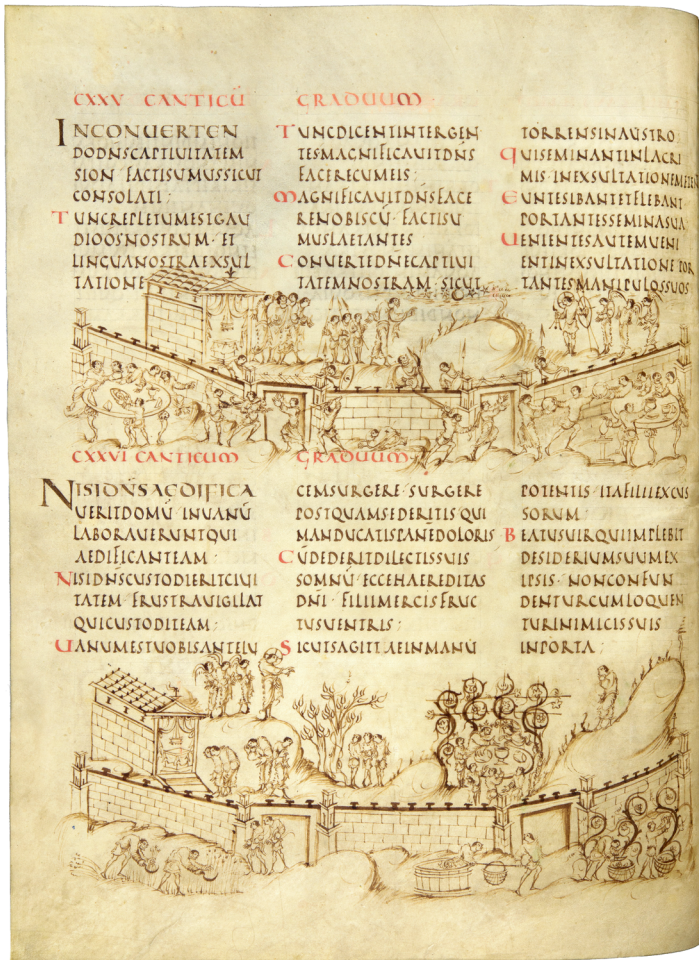 CXXV CANTICŪ GRADUUM
INCONUERTEN
DODN̄SCAPTIUITATEM
SION FACTISUMUSSICUT
CONSOLATI;
TUNCREPLETUMESTGAU
DIOŌSNOSTRUM· ET
LINGUANOSTRAEXSUL
TATIONE
TUNCDICENTINTERGEN
TESMAGNIFICAUITDN̄S
FACERECUMEIS;
MAGNIFICAUITDN̄SFACE
RENOBISCŪ· FACTISU
MUSLAETANTES
CONUERTEDN̄ECAPTIUI
TATEMNOSTRAM· SICUT
TORRENSINAUSTRO;
QUISEMINANTINLACRI
MIS· INEXSULTATIONEMETENT
EUNTESIBANTETFLEBANT
PORTANTESSEMINASUA
UENIENTESAUTEMUENI
ENTINEXSULTATIONE POR
TANTESMANIPULOSSUOS
CXXVI CANTICUM GRADUUM
NISIDN̄SAEDIFICA
UERITDOMŪ· INUANŪ
LABORAUERUNTQUI
AEDIFICANTEAM·
NISIDN̄SCUSTODIERITCIUI
TATEM· FRUSTRAUIGILAT
QUICUSTODITEAM;
UANUMESTUOBISANTELU
CEMSURGERE· SURGERE
POSTQUAMSEDERITIS QUI
MANDUCATISPANĒDOLORIS
CŪDEDERITDILECTISSUIS
SOMNŪ· ECCEHAEREDITAS
DN̄I· FILIIMERCISFRUC
TUSUENTRIS;
SICUTSAGITTAEINMANŪ
POTENTIS· ITAFILIIEXCUS
SORUM;
BEATUSUIRQUIIMPLEBIT
DESIDERIUMSUUMEX
IPSIS· NONCONFUN
DENTURCUMLOQUEN
TURINIMICISSUIS
INPORTA;